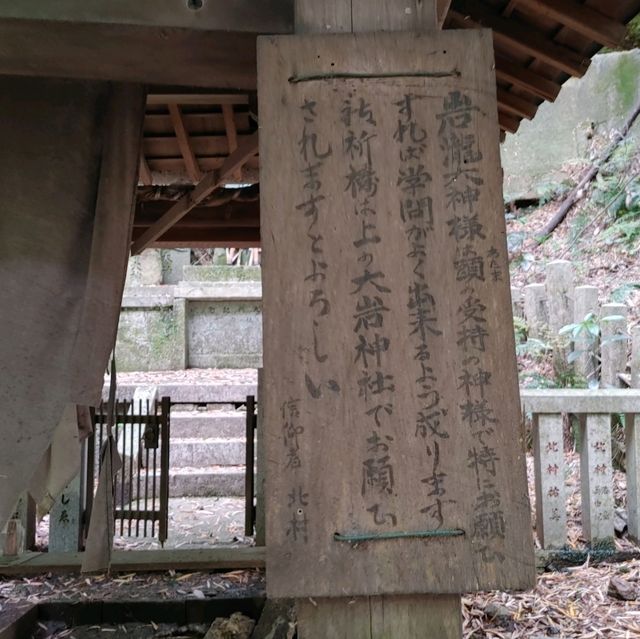 岩瀧大神様は頭の受持の神様で特にお願ひ
あたま
すれば学問がよく出来るよう成ります
祈祷は上の大岩神社でお願ひ
されますとよろしい
信仰者 北村
北村祐
北村